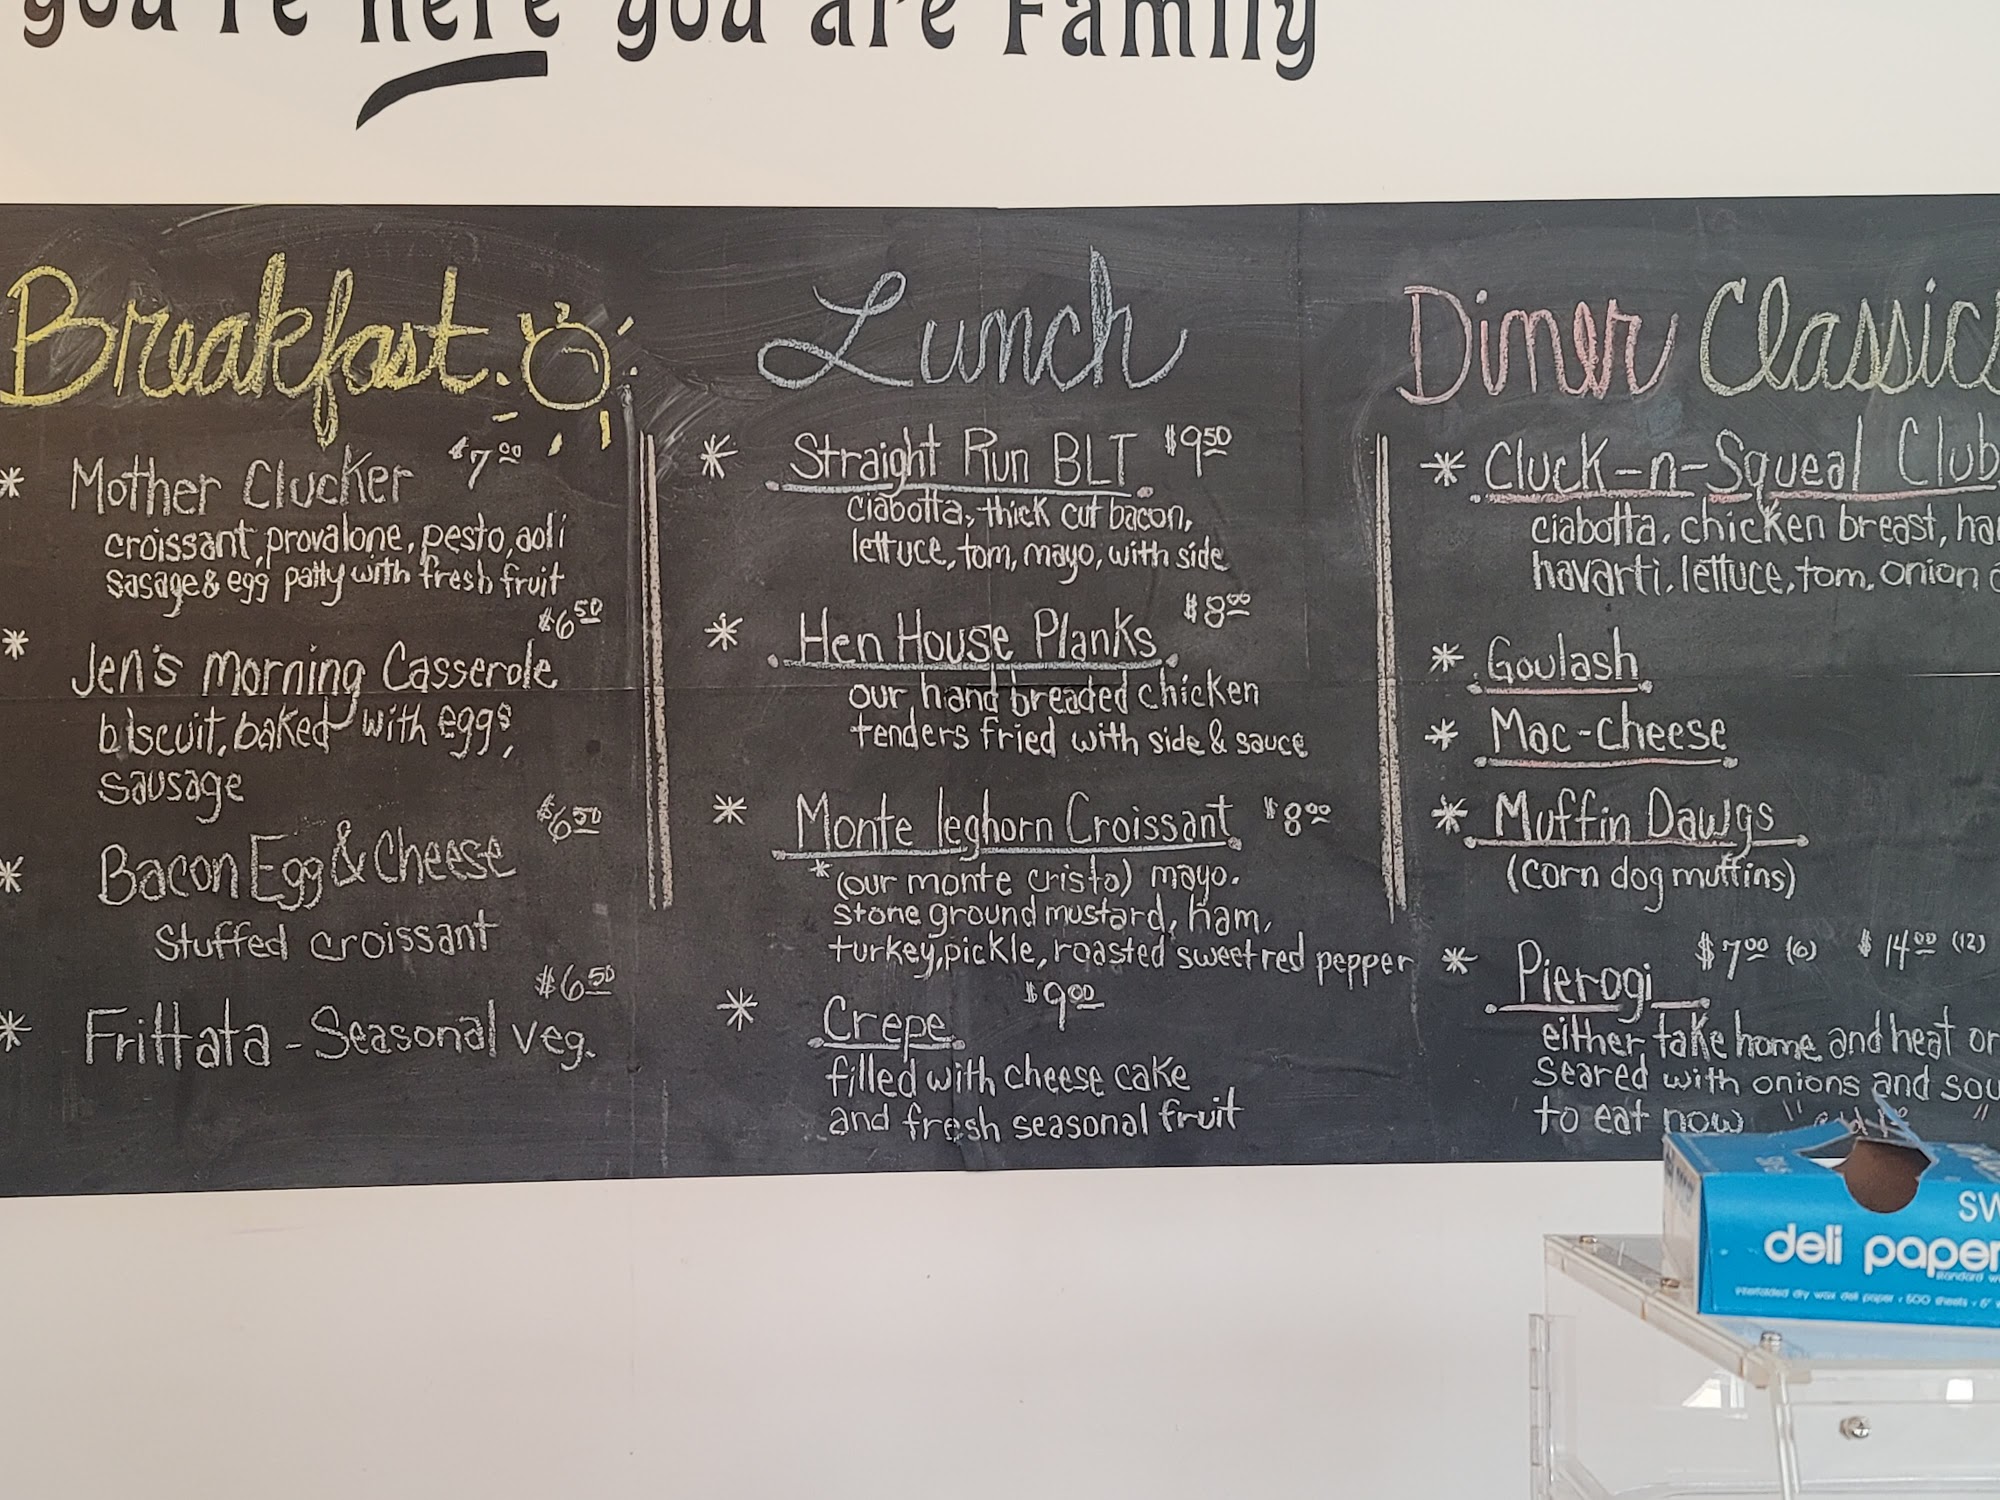 you're here you are Family
Breakfast
* Mother Clucker $7.00
croissant, provalone, pesto, aoli
sasage & egg patty with fresh fruit
* Jen's morning Casserole $6.50
biscuit, baked with eggs,
sausage
* Bacon Egg & Cheese $6.50
Stuffed croissant
* Frittata - Seasonal veg. $6.50
Lunch
* Straight Run BLT $9.50
ciabotta, thick cut bacon,
lettuce, tom, mayo, with side
* Hen House Planks $8.00
our hand breaded chicken
tenders fried with side & sauce
* Monte leghorn Croissant $8.00
*(our monte cristo) mayo.
stone ground mustard, ham,
turkey, pickle, roasted sweet red pepper
* Crepe $9.00
filled with cheese cake
and fresh seasonal fruit
Diner Classics
* Cluck-n-Squeal Club
ciabotta, chicken breast,
havarti, lettuce, tom, onion
* Goulash
* Mac-cheese
* Muffin Dawgs
(corn dog muffins)
* Pierogi $7.00 (6) $14.00 (12)
either take home and heat or
seared with onions and
to eat now
SW
deli paper
interfolded dry wax deli paper • 500 sheets • 6"